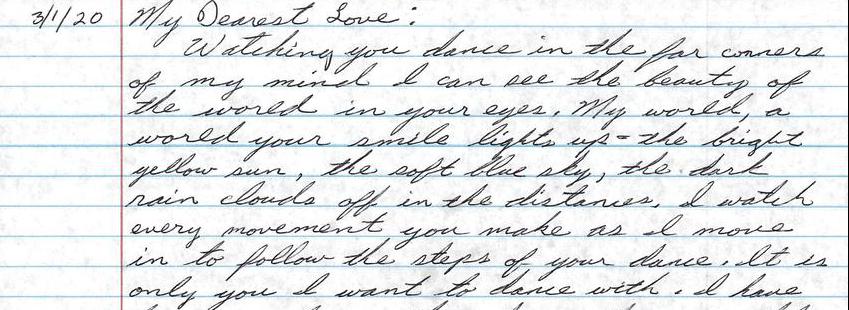 3/1/20 My Dearest Love:
Watching you dance in the far corners
of my mind I can see the beauty of
the world in your eyes. My world, a
world your smile lights up - the bright
yellow sun, the soft blue sky, the dark
rain clouds off in the distances. I watch
every movement you make as I move
in to follow the steps of your dance. It is
only you I want to dance with. I have